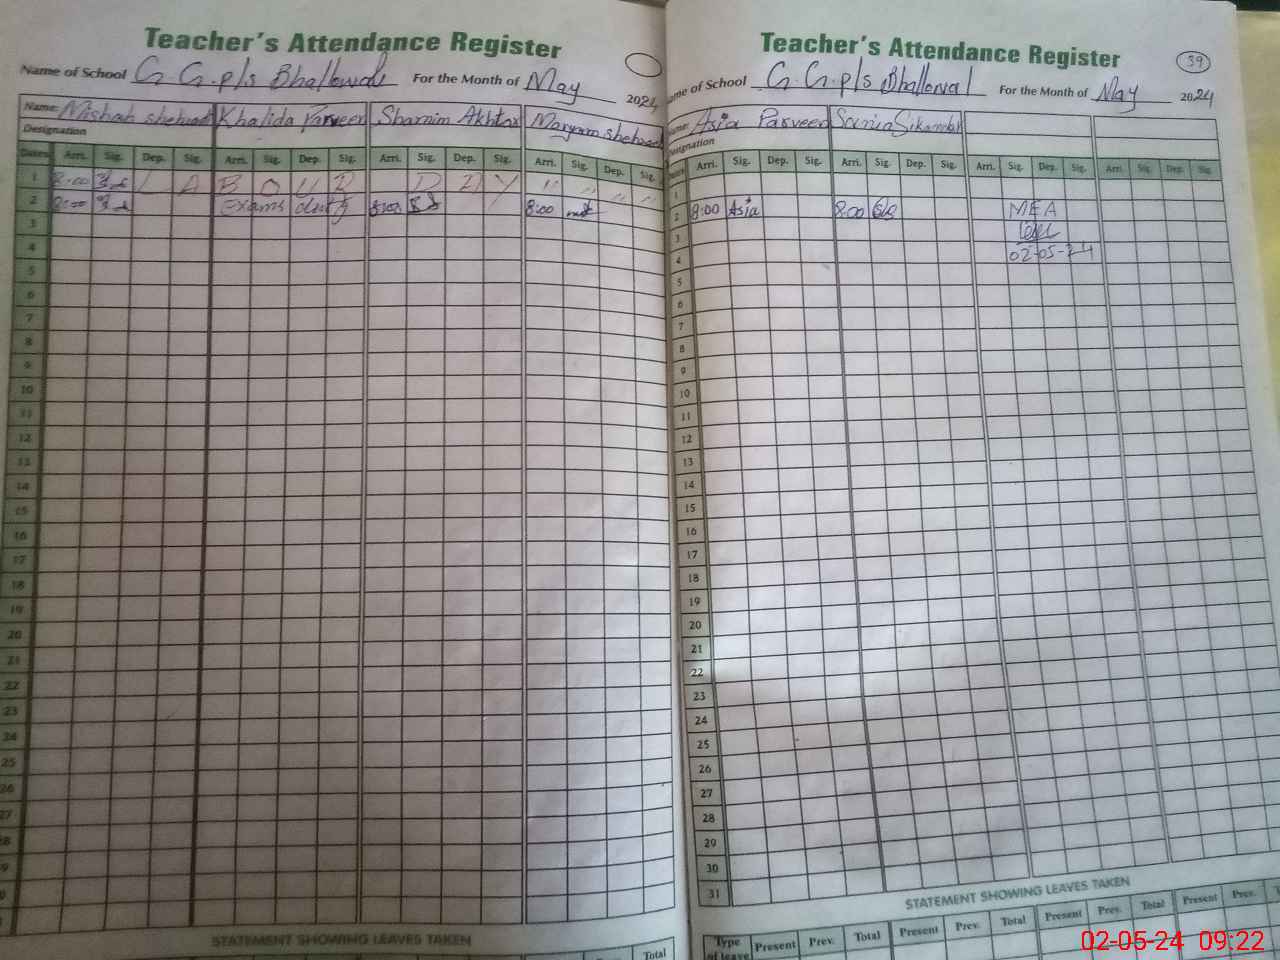 Teacher's Attendance Register
Name of School G.G.p/s Bhallowal For the Month of May 2024
Name: Misbah shehzadi Khalida Parveen Shamim Akhtar Maryam shehzadi
Designation
Dates Arri. Sig. Dep. Sig. Arri. Sig. Dep. Sig. Arri. Sig. Dep. Sig. Arri. Sig. Dep. Sig.
1 8:00 L A B O U R D A Y " " " "
2 8:00 exams duty 8:00 8:00
3
4
5
6
7
8
9
10
11
12
13
14
15
16
17
18
19
20
21
22
23
24
25
26
27
28
STATEMENT SHOWING LEAVES TAKEN
Total
Teacher's Attendance Register
39
Name of School G.G.p/s Bhallowal For the Month of May 2024
Name: Asia Parveen Sania Sikandar
Designation
Dates Arri. Sig. Dep. Sig. Arri. Sig. Dep. Sig. Arri. Sig. Dep. Sig. Arri. Sig. Dep. Sig.
1
2 8:00 Asia 8:00 MEA
3
4 02-05-24
5
6
7
8
9
10
11
12
13
14
15
16
17
18
19
20
21
22
23
24
25
26
27
28
29
30
31
STATEMENT SHOWING LEAVES TAKEN
Type of leave Present Prev. Total Present Prev. Total Present Prev. Total Present Prev.
02-05-24 09:22